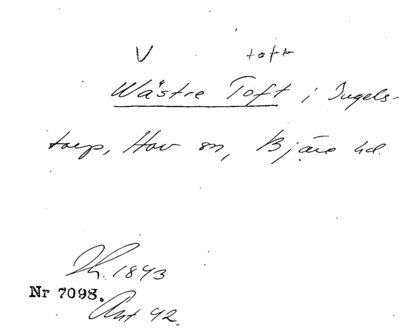 V toft
Wästre Toft i Ingels-
torp, Hov sn, Bjäre hd.
Th. 1843
Nr 7098.
Ant 42.